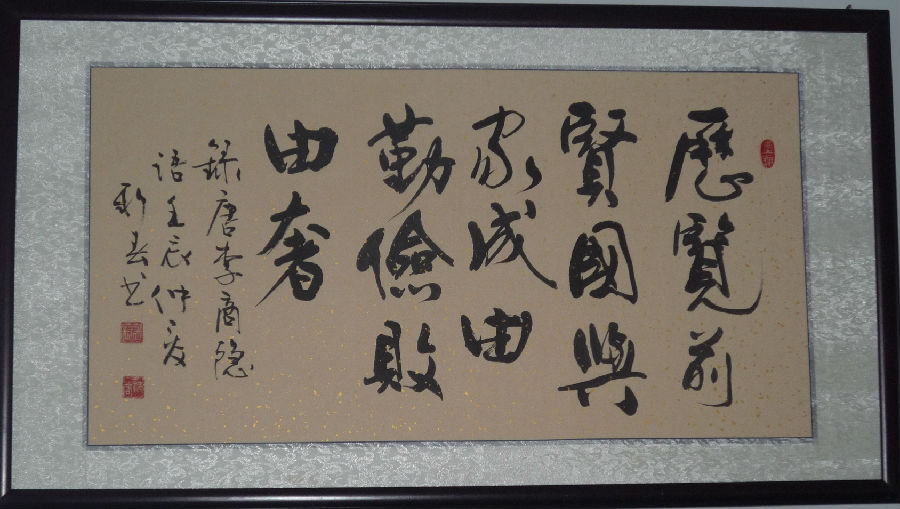 歷覽前
賢國與
家成由
勤儉敗
由奢
錄唐李商隐
語壬辰仲夏
书